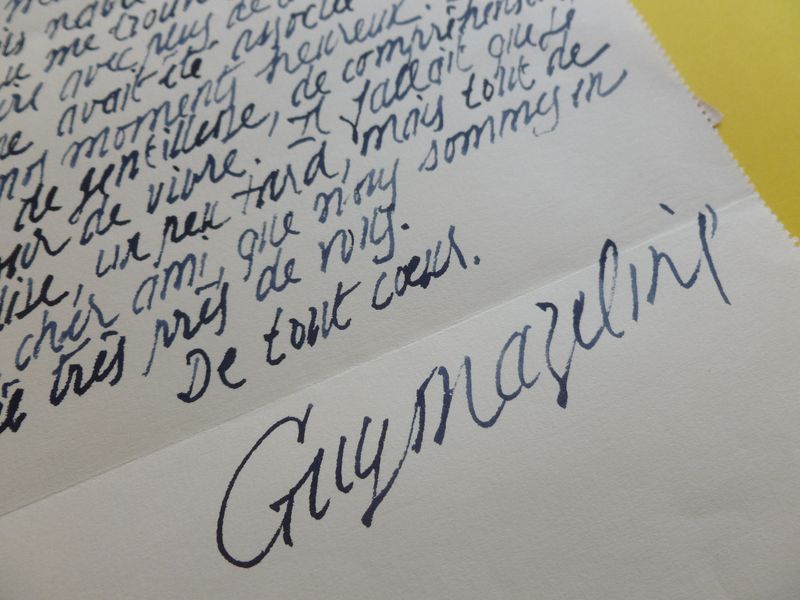 me trouv
avec plus de
avait été associé
nos moments heureux.
de gentillesse, de compréhension
de vivre. Il fallait que je
dise, un peu tard, mais tout de
cher ami, que nous sommes in
très près de vous.
De tout coeur.
Guy Mazeline